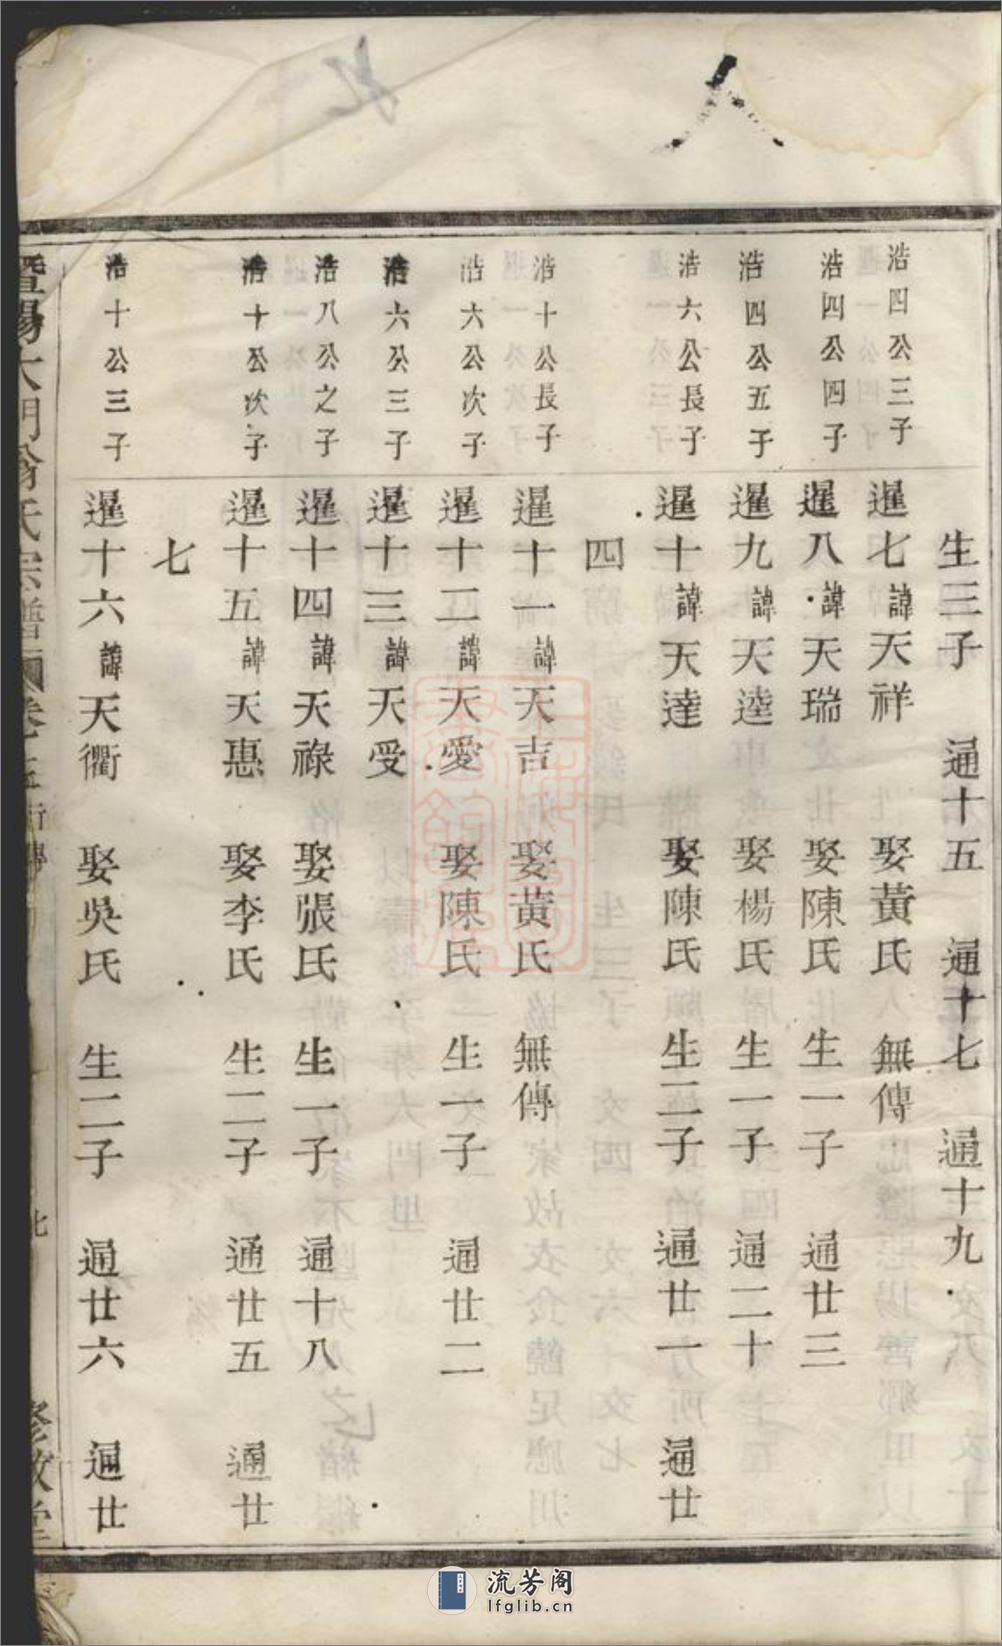 人
生三子 通十五 通十七 通十九
浩四公三子 暹七諱天祥 娶黃氏 無傳
浩四公四子 暹八諱天瑞 娶陳氏 生一子 通廿三
浩四公五子 暹九諱天逵 娶楊氏 生一子 通二十
浩六公長子 暹十諱天達 娶陳氏 生二子 通廿一 通廿
四
浩十公長子 暹十一諱天吉 娶黃氏 無傳
浩六公次子 暹十二諱天愛 娶陳氏 生一子 通廿二
浩六公三子 暹十三諱天受
浩八公之子 暹十四諱天祿 娶張氏 生一子 通十八
浩十公次子 暹十五諱天惠 娶李氏 生二子 通廿五 通廿
七
浩十公三子 暹十六諱天衢 娶吳氏 生二子 通廿六 通廿
暨陽大門翁氏宗譜 卷 行傳
流芳阁
lfglib.cn